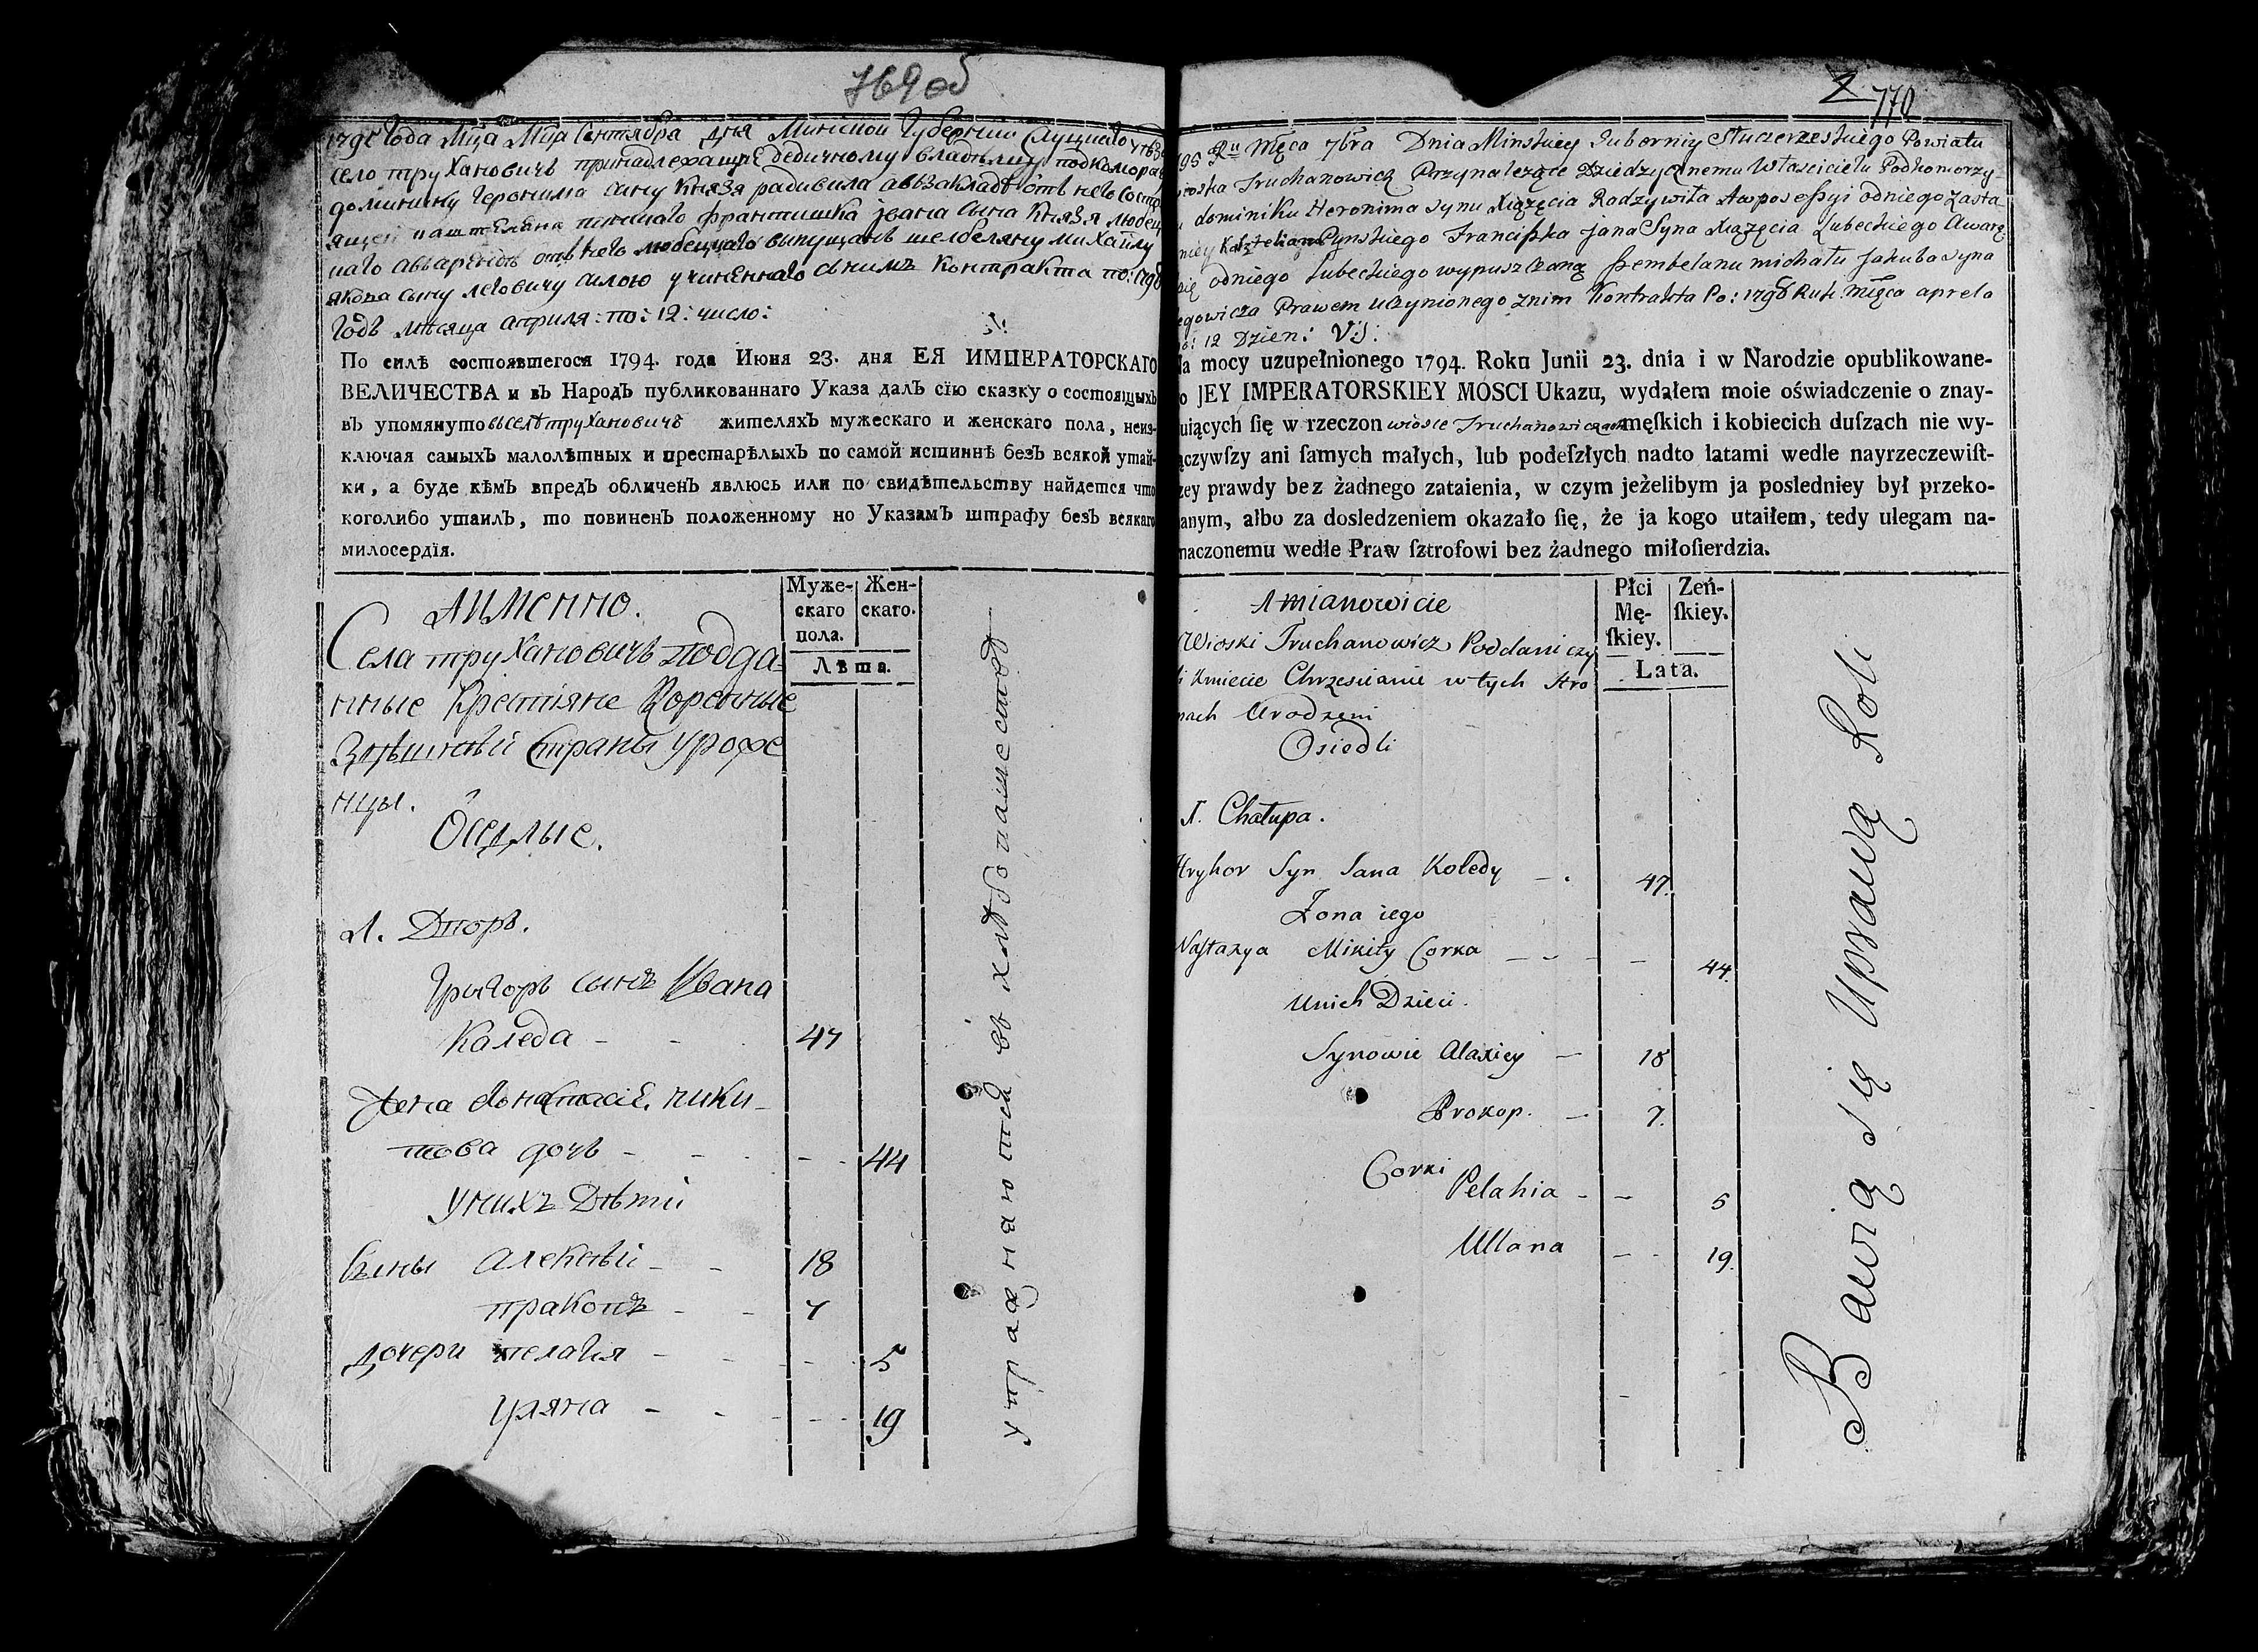 769 об
1795 Года Мца Мца Сентября дня Минской Губернии Слуцкаго уѣзда
село труХановичъ принадлежащцЕ дедичному владѣлцу подкоморащ
доминику Геронима сину Князя радивила авъзакладѣ отъ него состо
ящеи каштеляна пинскаго франтишка јвана сына Князя любец
каго авъаренде отъ него любецкаго випущанъ шелбеляну михайлу
якова сыну леговичу силою учиненнаго сънимъ контракта по: 1798
Годъ мѣсяца априля: по: 12: число:
По силѣ состоявшегося 1794. года Июня 23. дня ЕЯ ИМПЕРАТОРСКАГО
ВЕЛИЧЕСТВА и въ Народъ публикованнаго Указа далъ сїю сказку о состоящыхъ
въ упомянуто въселѣ труХановичъ жителяхъ мужескаго и женскаго пола, неиз-
ключая самыхъ малолѣтных и престарѣлыхъ по самой истиннѣ безъ всякой утай-
ки, а буде кѣмъ впредъ обличенъ явлюсь или по свидѣтельству найдется что
коголибо утаилъ, то повиненъ положенному но Указамъ штрафу безъ всякаго
милосердїя.
АИМенно.
Муже-
скаго
пола.
Жен-
скаго.
Лѣта.
Села труХановичъ подда-
нные Крестіяне Коренные
Здѣшнѣй Страны уроже
нцы.
Осѣдлые.
1. Дворъ.
Грыгоръ сынъ Ивана
Каледа - - 47
Жена Анастасіе. ники-
това дочъ - - - - 44
унихъ Дѣти
Сыны Алексѣй - - 18
пракопъ - - 7
дочери пелагия - - - - 5
уляна - - - - 19
упражняются въ хлѣбопашествѣ
2 770
195 Ru Męca 7bra Dnia Minskiey Guberniy Stuczerzeskiego Powiatu
wioska Truchanowicz Przynalezące Dziedzycznemu Właścicielu Podkomorzy-
u dominiku Heronima synu Xiązęcia Radzywiła Awposessyi odniego Zasta-
niey Kasztelana Pynskiego Franciszka jana Syna Xiązęcia Lubeckiego Awarę
się odniego Lubeckiego wypuszczaną szembelanu michału Jakuba syna
egowicza Prawem Uczynionego znim Kontrakta Po: 1798 Ruk: Mięca aprela
po: 12 Dzien: VS:
Na mocy uzupełnionego 1794. Roku Junii 23. dnia i w Narodzie opublikowane-
o JEY IMPERATORSKIEY MOSCI Ukazu, wydałem moie oświadczenie o znay-
uiących ſię w rzeczon wiosce Truchanowiczach męſkich i kobiecich duſzach nie wy-
ączywſzy ani ſamych małych, lub podeſzłych nadto latami wedle nayrzeczewiſt-
zey prawdy bez żadnego zataienia, w czym jeżelibym ja posledniey był przeko-
anym, albo za dosledzeniem okazało ſię, że ja kogo utaiłem, tedy ulegam na-
naczonemu wedle Praw ſztrofowi bez żadnego miłoſierdzia.
Amianowicie
Płci
Mę-
ſkiey.
Żeń-
ſkiey.
Lata.
Wioski Truchanowicz Poddani czy
li Kmiecie Chrzescianie wtych stro
nach Urodzeni
Osiedli
1. Chałupa.
Hryhor Syn Jana Koledy - . 47.
Zona iego
Nastazya Mikity Corka - - - - 44.
Unich Dzieci.
Synowie Alaxiey - 18
Prokop. - 7.
Corki
Pelahia - - 5
Ullana - - 19.
Bawią się Uprawą Roli